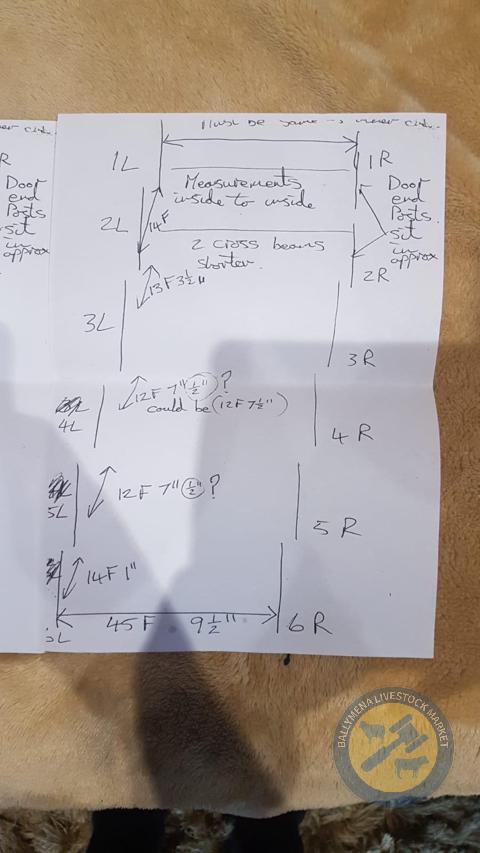 must be same
1L
1R
Measurements
inside to inside
Door
end
Posts
sit
in
approx
2L
14F
2 cross beams
shorter.
2R
13F 3½"
3L
3R
12F 7"½" ?
could be (12F 7½")
4L
4R
12F 7" ½" ?
5L
5R
14F 1"
45F 9½"
6R
R
Door
end
Posts
sit
in
approx
BALLYMENA LIVESTOCK MARKET